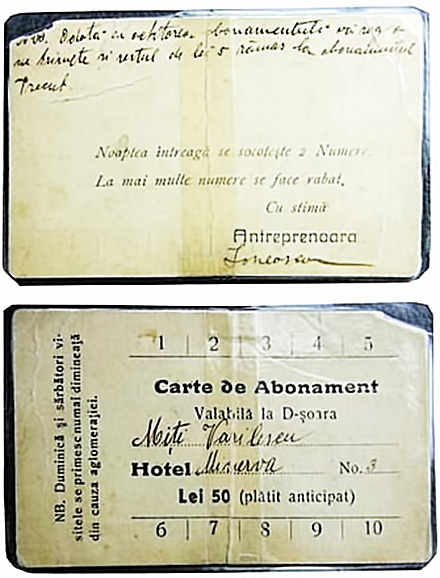 Odată cu achitarea abonamentului vă rog a
ne trimite și restul de lei 5 rămas la abonamentul
trecut.
Noaptea întreagă se socotește 2 Numere.
La mai multe numere se face rabat.
Cu stimă
Antreprenoara
1 2 3 4 5
Carte de Abonament
Valabilă la D-șoara
Miți Vasilescu
Hotel Minerva No. 3
Lei 50 (plătit anticipat)
6 7 8 9 10
NB. Duminică și sărbători vi-
sitele se primesc numai dimineață
din cauza aglomerației.